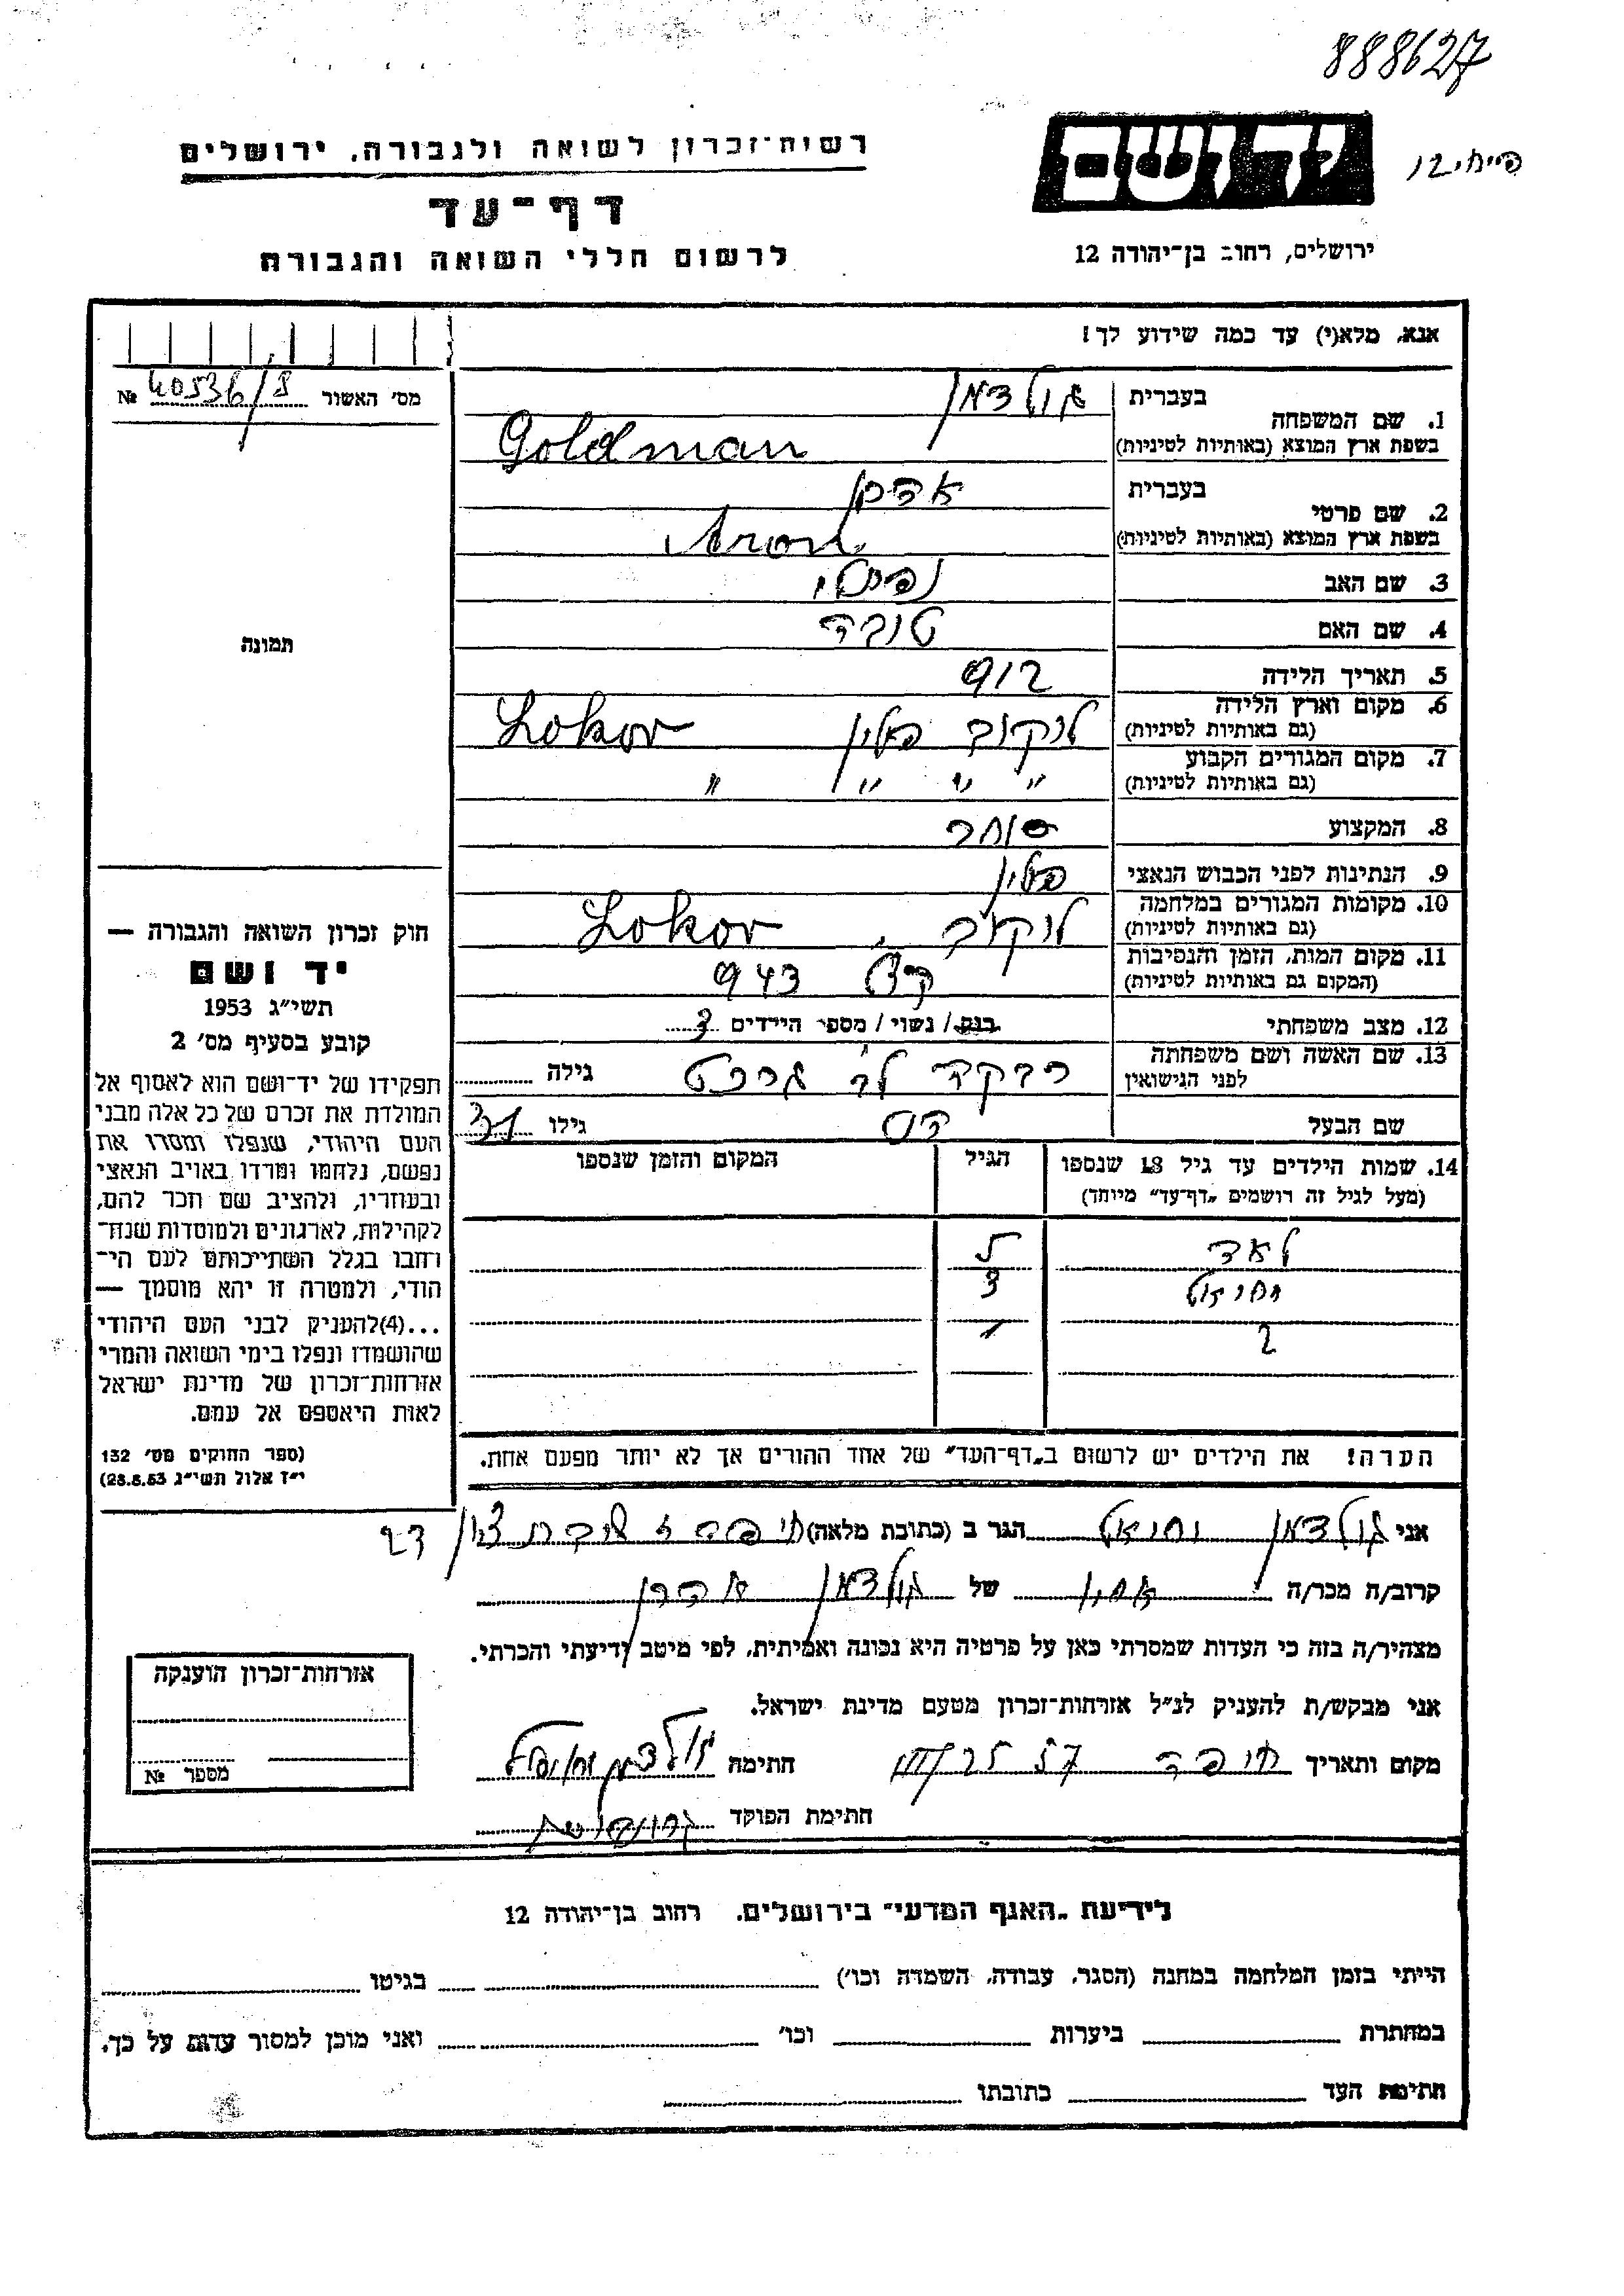 888627
רשות־זכרון לשואה ולגבורה. ירושלים
דף־עד
לרשום חללי השואה והגבורה
יד ושם
ירושלים, רחוב בן־יהודה 12
אנא, מלא(י) עד כמה שידוע לך!
מס׳ האשור 40536/8 №
1. שם המשפחה
בעברית גולדמן
בשפת ארץ המוצא (באותיות לטיניות) Goldman
2. שם פרטי
בעברית אהרן
בשפת ארץ המוצא (באותיות לטיניות) Aron
3. שם האב נפתלי
4. שם האם טובה
5. תאריך הלידה 912
6. מקום וארץ הלידה
(גם באותיות לטיניות) לוקוב פולין Lokov
7. מקום המגורים הקבוע
(גם באותיות לטיניות) " " " "
8. המקצוע סוחר
9. הנתינות לפני הכבוש הנאצי פולין
10. מקומות המגורים במלחמה
(גם באותיות לטיניות) לוקוב, Lokov
11. מקום המות, הזמן והנסיבות
(המקום גם באותיות לטיניות) קיץ 943
12. מצב משפחתי רווק / נשוי / מספר הילדים 3
13. שם האשה ושם משפחתה
לפני הנישואין רבקה לב גילה
שם הבעל גילו 31
14. שמות הילדים עד גיל 18 שנספו
(מעל לגיל זה רושמים „דף־עד״ מיוחד)
הגיל
המקום והזמן שנספו
לאה 5
3
2 1
הערה! את הילדים יש לרשום ב„דף־העד״ של אחד ההורים אך לא יותר מפעם אחת.
תמונה
חוק זכרון השואה והגבורה —
יד ושם
תשי״ג 1953
קובע בסעיף מס׳ 2
תפקידו של יד־ושם הוא לאסוף אל
המולדת את זכרם של כל אלה מבני
העם היהודי, שנפלו ומסרו את
נפשם, נלחמו ומרדו באויב הנאצי
ובעוזריו, ולהציב שם וזכר להם,
לקהילות, לארגונים ולמוסדות שנח־
רחבו בגלל השתייכותם לעם הי־
הודי, ולמטרה זו יהא מוסמך —
...(4)להעניק לבני העם היהודי
שהושמדו ונפלו בימי השואה והמרי
אזרחות־זכרון של מדינת ישראל
לאות היאספם אל עמם.
(ספר החוקים מס׳ 132
י״ז אלול תשי״ג 28.8.53)
אני גולדמן הגר ב (כתובת מלאה) חיפה
קרוב/ה מכר/ה אחיו של גולדמן אהרן
מצהיר/ה בזה כי העדות שמסרתי כאן על פרטיה היא נכונה ואמיתית, לפי מיטב ידיעתי והכרתי.
אני מבקש/ת להעניק לנ״ל אזרחות־זכרון מטעם מדינת ישראל.
מקום ותאריך חיפה חתימה
חתימת הפוקד
אזרחות־זכרון הוענקה
מספר №
לידיעת „האגף המדעי״ בירושלים. רחוב בן־יהודה 12
הייתי בזמן המלחמה במחנה (הסגר, עבודה, השמדה וכו׳) בגיטו
במחתרת ביערות וכו׳ ואני מוכן למסור עדות על כך.
חתימת העד כתובתו